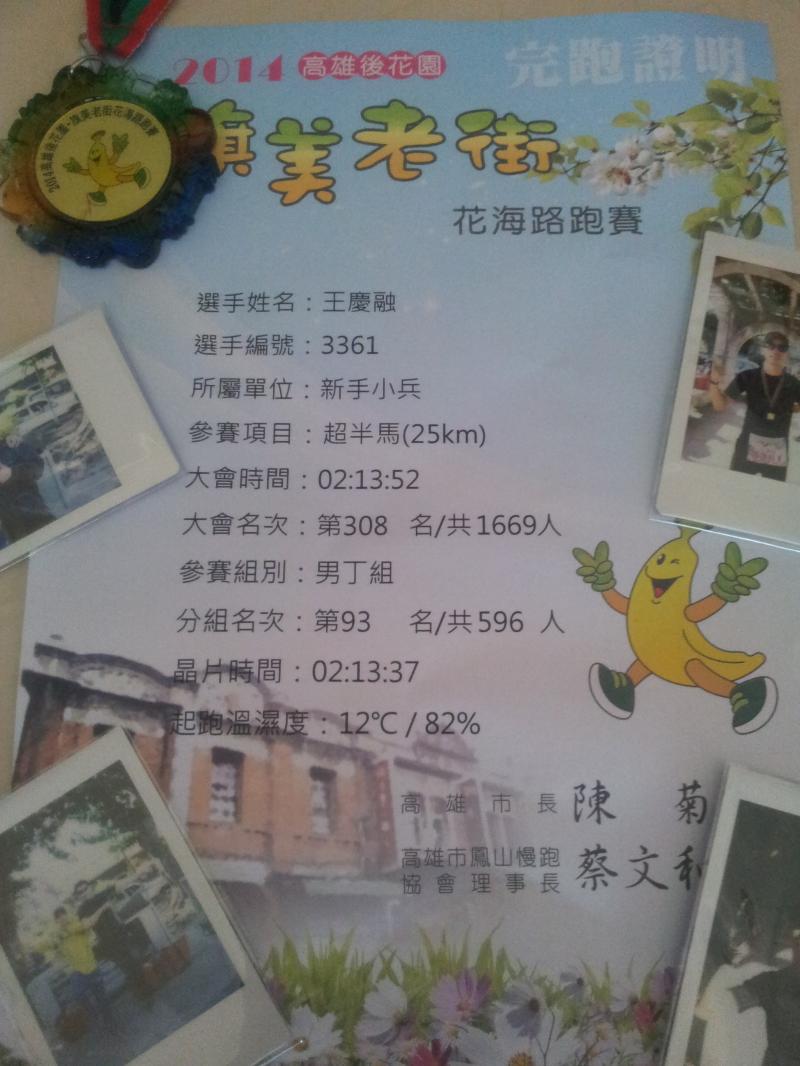 2014 高雄後花園 完跑證明
旗美老街
花海路跑賽
2014高雄後花園‧旗美老街花海路跑賽
選手姓名：王慶融
選手編號：3361
所屬單位：新手小兵
參賽項目：超半馬(25km)
大會時間：02:13:52
大會名次：第308 名/共1669人
參賽組別：男丁組
分組名次：第93 名/共596 人
晶片時間：02:13:37
起跑溫濕度：12℃ / 82%
高雄市長 陳 菊
高雄市鳳山慢跑
協會理事長 蔡文利
3361